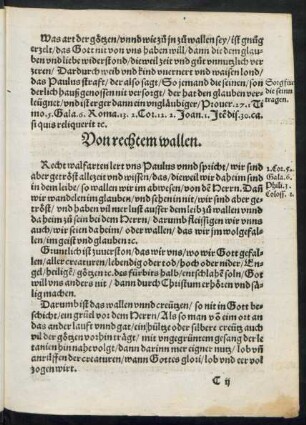 Was art der götzen/ vnnd wie zů jn zů wallen sey/ ist gnůg
erzelt/ das Gott nit von vns haben will/ dann die dem glau-
ben vnd liebe widerstond/ die weil zeit vnd gůt vnnutzlich ver
zeren/ Dardurch weib vnd kind vnernert vnd waisen lond/
das Paulus straft/ der also spricht/ So jemand die seinen/ son
derlich haußgenossen nit versorgt/ der hat den glauben ver-
leügnet/ vnd ist erger dann ein vngläubiger/ Prouer. 27. 1. Ti
mo. 5. Gala. 6. Roma. 13. 2. Cor. 12. 2. Joan. 1. Jtē dis. 30. ca.
si quis reliquerit ꝛc.
Sorg für
die seinen
tragen.
Von rechtem wallen.
Recht walfarten lert vns Paulus vnnd spricht/ wir sind
aber getröst alle zeit vnd wissen/ das/ die weil wir daheim sind
in dem leibe/ so wallen wir im abwesen/ von dē Herrn. Dañ
wir wandeln im glauben/ vnd sehen in nit/ wir sind aber ge-
tröst/ vnd haben vil mer lust ausser dem leib zů wallen vnnd
daheim zů sein bei dem Herrn/ darumb fleissigen wir vnns
auch/ wir seien daheim/ oder wallen/ das wir jm wolgefal-
len/ im geist vnd glauben ꝛc.
2. Cor. 5.
Gala. 6.
Phili. 3.
Coloss. 2.
Grüntlich ist zu verston/ das wir vns/ wo wir Gott gefal-
len/ aller creaturen/ lebendig oder tod/ hoch oder nider/ En-
gel/ heilige/ götzen ꝛc. des fürbits halb/ entschlahē sol̄n/ Got
will vns anders nit/ dann durch Christum erhören vnd sä-
lig machen.
Darumb ist das wallen vnnd creützen/ so nit in Gott be-
schicht/ ein grüel vor dem Herrn/ Als so man vō eim ort an
das ander laufft vnnd gat/ ein hültze oder silbere creütz auch
wil der götzen vorhin trägt/ mit vngegrüntem gesang der le
tanien hinnahe volgt/ dann darinn mer eigner nutz/ lob vñ
anrüffen der creaturen/ wann Gottes glori/ lob vnd eer vol
zogen wirt.
C ij